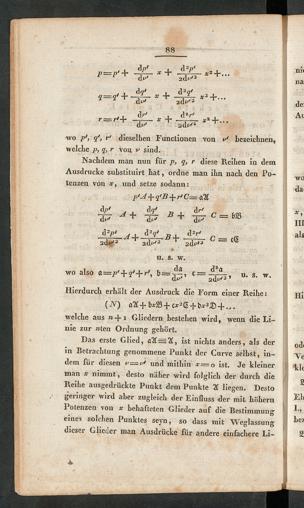 88
p = p′ + dp′/dν′ x + d²p′/2dν′² x² + ...
q = q′ + dq′/dν′ x + d²q′/2dν′² x² + ...
r = r′ + dr′/dν′ x + d²r′/2dν′² x² + ...
wo p′, q′, r′ dieselben Functionen von ν′ bezeichnen,
welche p, q, r von ν sind.
Nachdem man nun für p, q, r diese Reihen in dem
Ausdrucke substituirt hat, ordne man ihn nach den Po-
tenzen von x, und setze sodann:
p′A + q′B + r′C = a𝔄
dp′/dν′ A + dq′/dν′ B + dr′/dν′ C = b𝔅
d²p′/2dν′² A + d²q′/2dν′² B + d²r′/2dν′² C = cℭ
u. s. w.
wo also a = p′ + q′ + r′, b = da/dν′, c = d²a/2dν′², u. s. w.
Hierdurch erhält der Ausdruck die Form einer Reihe:
(N) a𝔄 + bx𝔅 + cx²ℭ + bx³𝔇 + ...
welche aus n + 1 Gliedern bestehen wird, wenn die Li-
nie zur nten Ordnung gehört.
Das erste Glied, a𝔄 ≡ 𝔄, ist nichts anders, als der
in Betrachtung genommene Punkt der Curve selbst, in-
dem für diesen ν = ν′ und mithin x = 0 ist. Je kleiner
man x nimmt, desto näher wird folglich der durch die
Reihe ausgedrückte Punkt dem Punkte 𝔄 liegen. Desto
geringer wird aber zugleich der Einfluss der mit höhern
Potenzen von x behafteten Glieder auf die Bestimmung
eines solchen Punktes seyn, so dass mit Weglassung
dieser Glieder man Ausdrücke für andere einfachere Li-